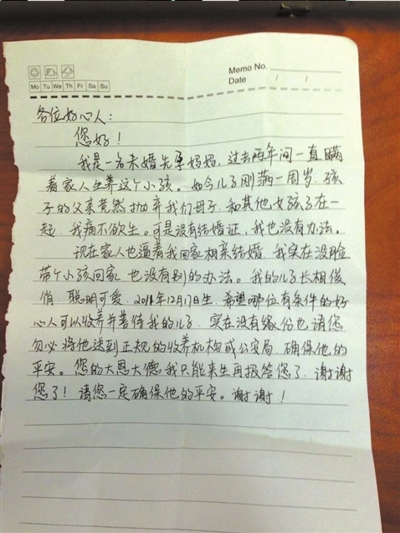 Memo No.
Mo Tu We Th Fr Sa Su
Date / /
各位好心人：
您好！
我是一名未婚先孕妈妈，过去两年间一直瞒
着家人生养这个小孩。如今儿子刚满一周岁，孩
子的父亲竟然抛弃我们母子，和其他女孩子在一
起，我痛不欲生。可是没有结婚证，我也没有办法。
现在家人也逼着我回家相亲结婚，我实在没脸
带个小孩回家，也没有别的办法。我的儿子长相俊
俏，聪明可爱，2018年12月17日生，希望哪位有条件的好
心人可以收养并善待我的儿子，实在没有缘份也请您
务必将他送到正规的收养机构或公安局，确保他的
平安。您的大恩大德，我只能来生再报答您了，谢谢
您了！请您一定确保他的平安。谢谢！